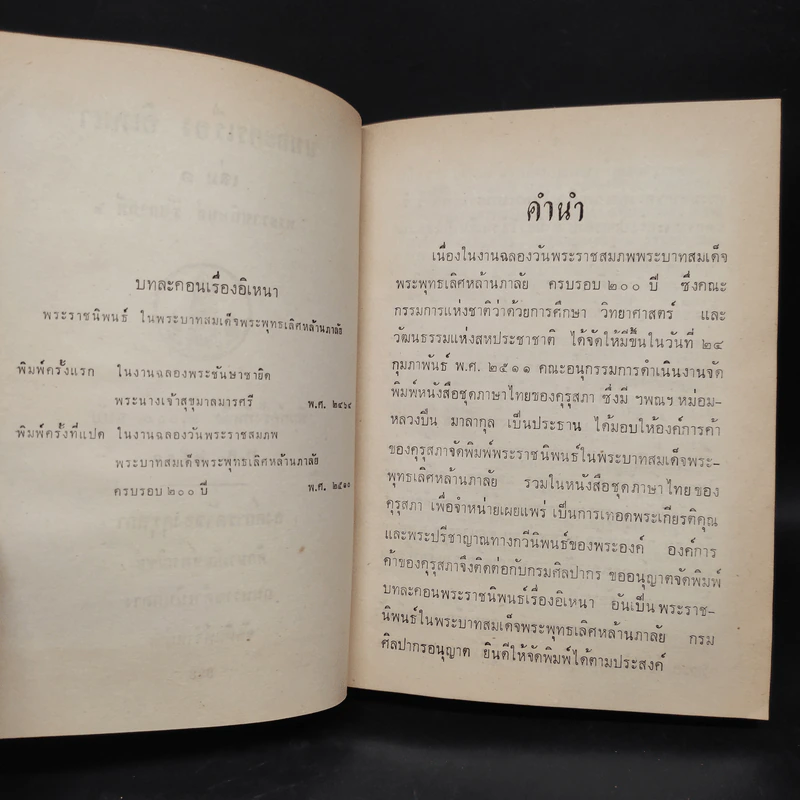 บทละคอนเรื่องอิเหนา
พระราชนิพนธ์ ในพระบาทสมเด็จพระพุทธเลิศหล้านภาลัย
พิมพ์ครั้งแรก ในงานฉลองพระชันษาซายิด
พระนางเจ้าสุขุมาลมารศรี พ.ศ. ๒๔๖๔
พิมพ์ครั้งที่แปด ในงานฉลองวันพระราชสมภพ
พระบาทสมเด็จพระพุทธเลิศหล้านภาลัย
ครบรอบ ๒๐๐ ปี พ.ศ. ๒๕๑๐
คำนำ
เนื่องในงานฉลองวันพระราชสมภพพระบาทสมเด็จ
พระพุทธเลิศหล้านภาลัย ครบรอบ ๒๐๐ ปี ซึ่งคณะ
กรรมการแห่งชาติว่าด้วยการศึกษา วิทยาศาสตร์ และ
วัฒนธรรมแห่งสหประชาชาติ ได้จัดให้มีขึ้นในวันที่ ๒๔
กุมภาพันธ์ พ.ศ. ๒๕๑๑ คณะอนุกรรมการดำเนินงานจัด
พิมพ์หนังสือชุดภาษาไทยของคุรุสภา ซึ่งมี ฯพณฯ หม่อม-
หลวงปิ่น มาลากุล เป็นประธาน ได้มอบให้องค์การค้า
ของคุรุสภาจัดพิมพ์พระราชนิพนธ์ในพระบาทสมเด็จพระ-
พุทธเลิศหล้านภาลัย รวมในหนังสือชุดภาษาไทยของ
คุรุสภา เพื่อจำหน่ายเผยแพร่ เป็นการเทอดพระเกียรติคุณ
และพระปรีชาญาณทางกวีนิพนธ์ของพระองค์ องค์การ
ค้าของคุรุสภาจึงติดต่อกับกรมศิลปากร ขออนุญาตจัดพิมพ์
บทละคอนพระราชนิพนธ์เรื่องอิเหนา อันเป็นพระราช-
นิพนธ์ในพระบาทสมเด็จพระพุทธเลิศหล้านภาลัย กรม
ศิลปากรอนุญาต ยินดีให้จัดพิมพ์ได้ตามประสงค์